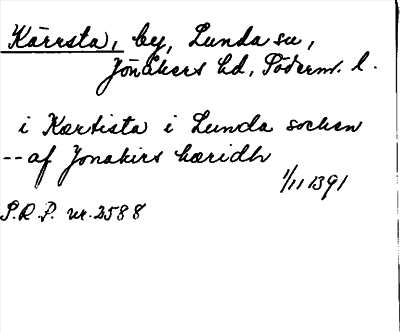 Kärrsta, by, Lunda sn,
Jönåkers hd, Söderm. l.
i Kærtista i Lunda sochen
-- af Jonakirs hæridh
1/11 1391
S.R.P. nr. 2588